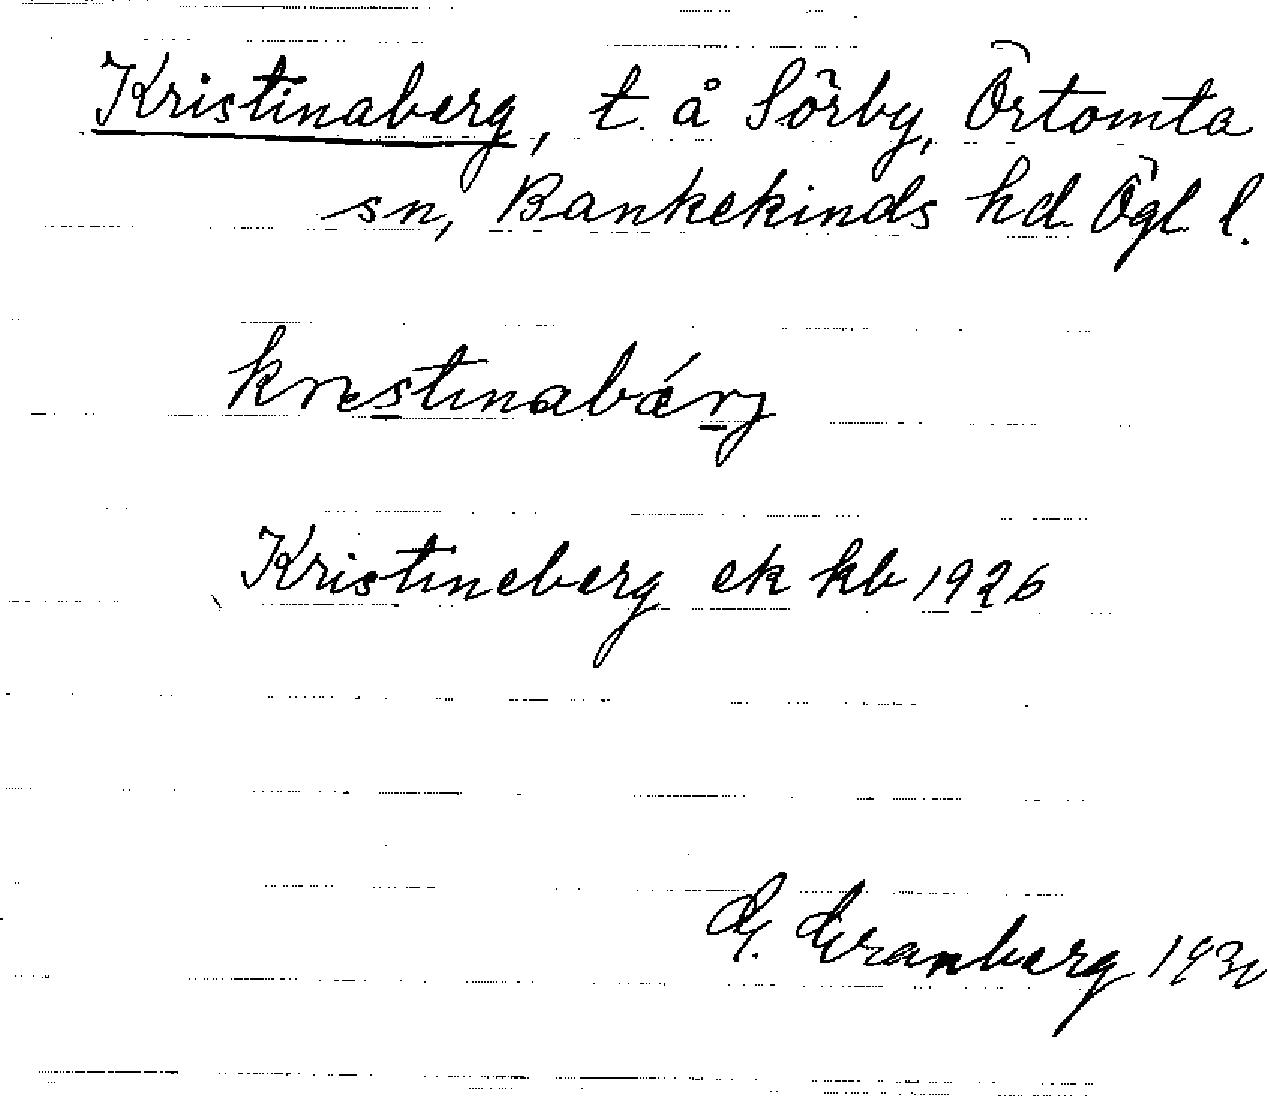 Kristinaberg, t. å Sörby, Örtomta
sn, Bankekinds hd Ögl l.
krıstınabärj
Kristineberg ek kb 1926
G. Granberg 193